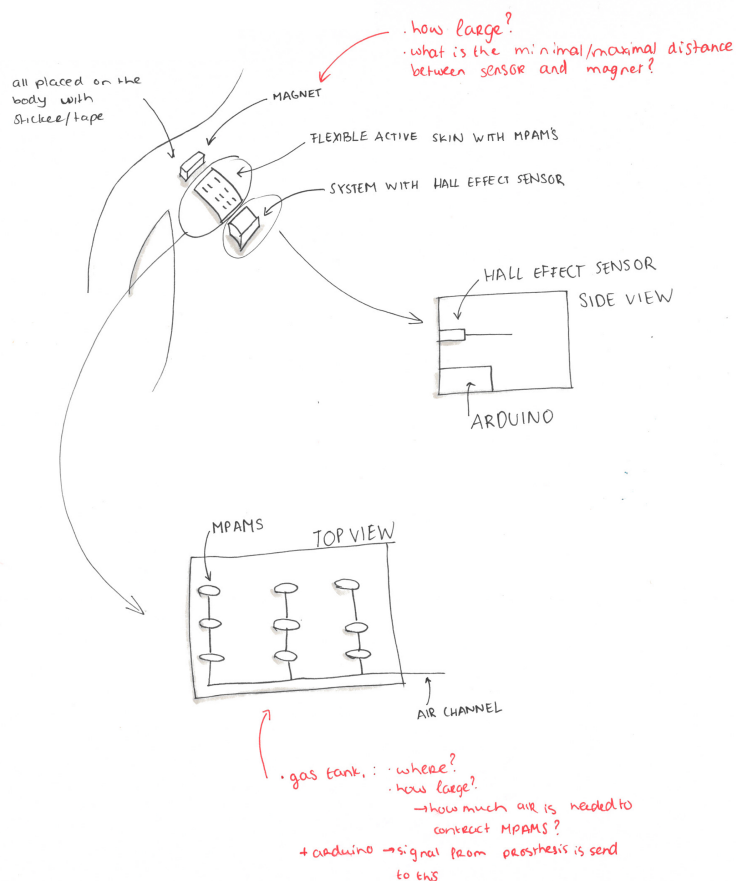 . how large?
. what is the minimal/maximal distance
between sensor and magnet?
all placed on the
body with
sticker/tape
MAGNET
FLEXIBLE ACTIVE SKIN WITH MPAM'S
SYSTEM WITH HALL EFFECT SENSOR
HALL EFFECT SENSOR
SIDE VIEW
ARDUINO
MPAMS
TOP VIEW
AIR CHANNEL
. gas tank, : . where?
. how large?
→ how much air is needed to
contract MPAMS?
+ arduino → signal from prosthesis is send
to this